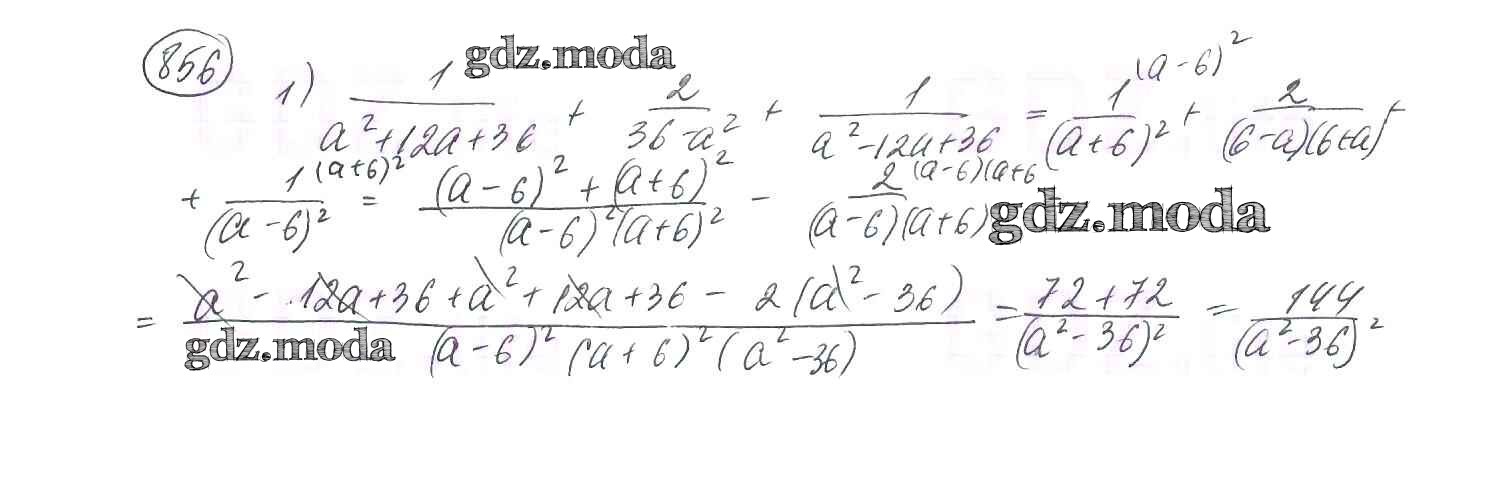 856 gdz.moda
1) 1/(a²+12a+36) + 2/(36-a²) + 1/(a²-12a+36) = 1^(a-6)²/(a+6)² + 2/((6-a)(6+a)) +
+ 1^(a+6)²/(a-6)² = ((a-6)²+(a+6)²)/((a-6)²(a+6)²) - 2^(a-6)(a+6/((a-6)(a+6)) gdz.moda
= (a² - 12a+36+a²+12a+36 - 2(a²-36))/((a-6)²(a+6)²(a²-36)) = (72+72)/(a²-36)² = 144/(a²-36)²
gdz.moda